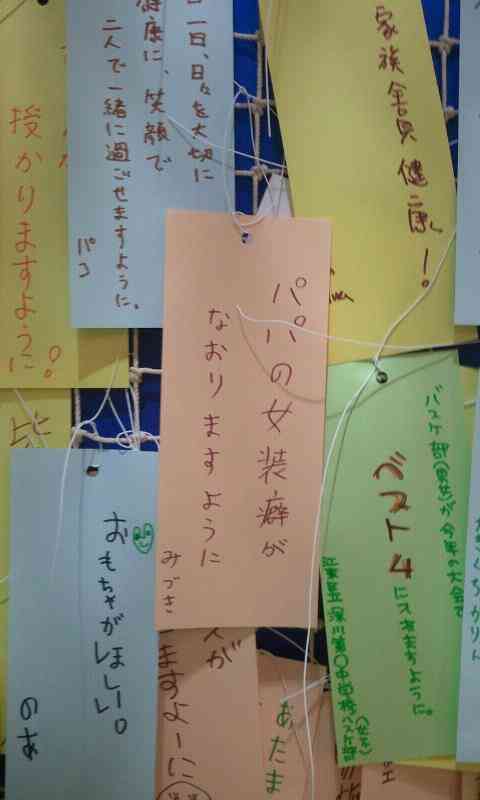 授かりますように！
日一日、日々を大切に
健康に、笑顔で
二人で一緒に過ごせますように。
パコ
家族全員健康！
パパの女装癖が
なおりますように
みづき
バスケ部(男女)が今年の大会で
ベスト4
に入れますように。
江東区立深川第〇中学校バスケ部
おもちゃがほしいー。
のあ
が
ますよーに
あたま